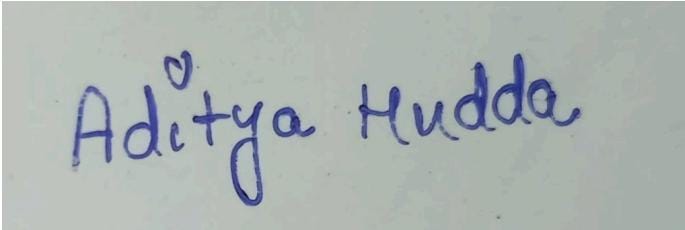 Aditya Hudda